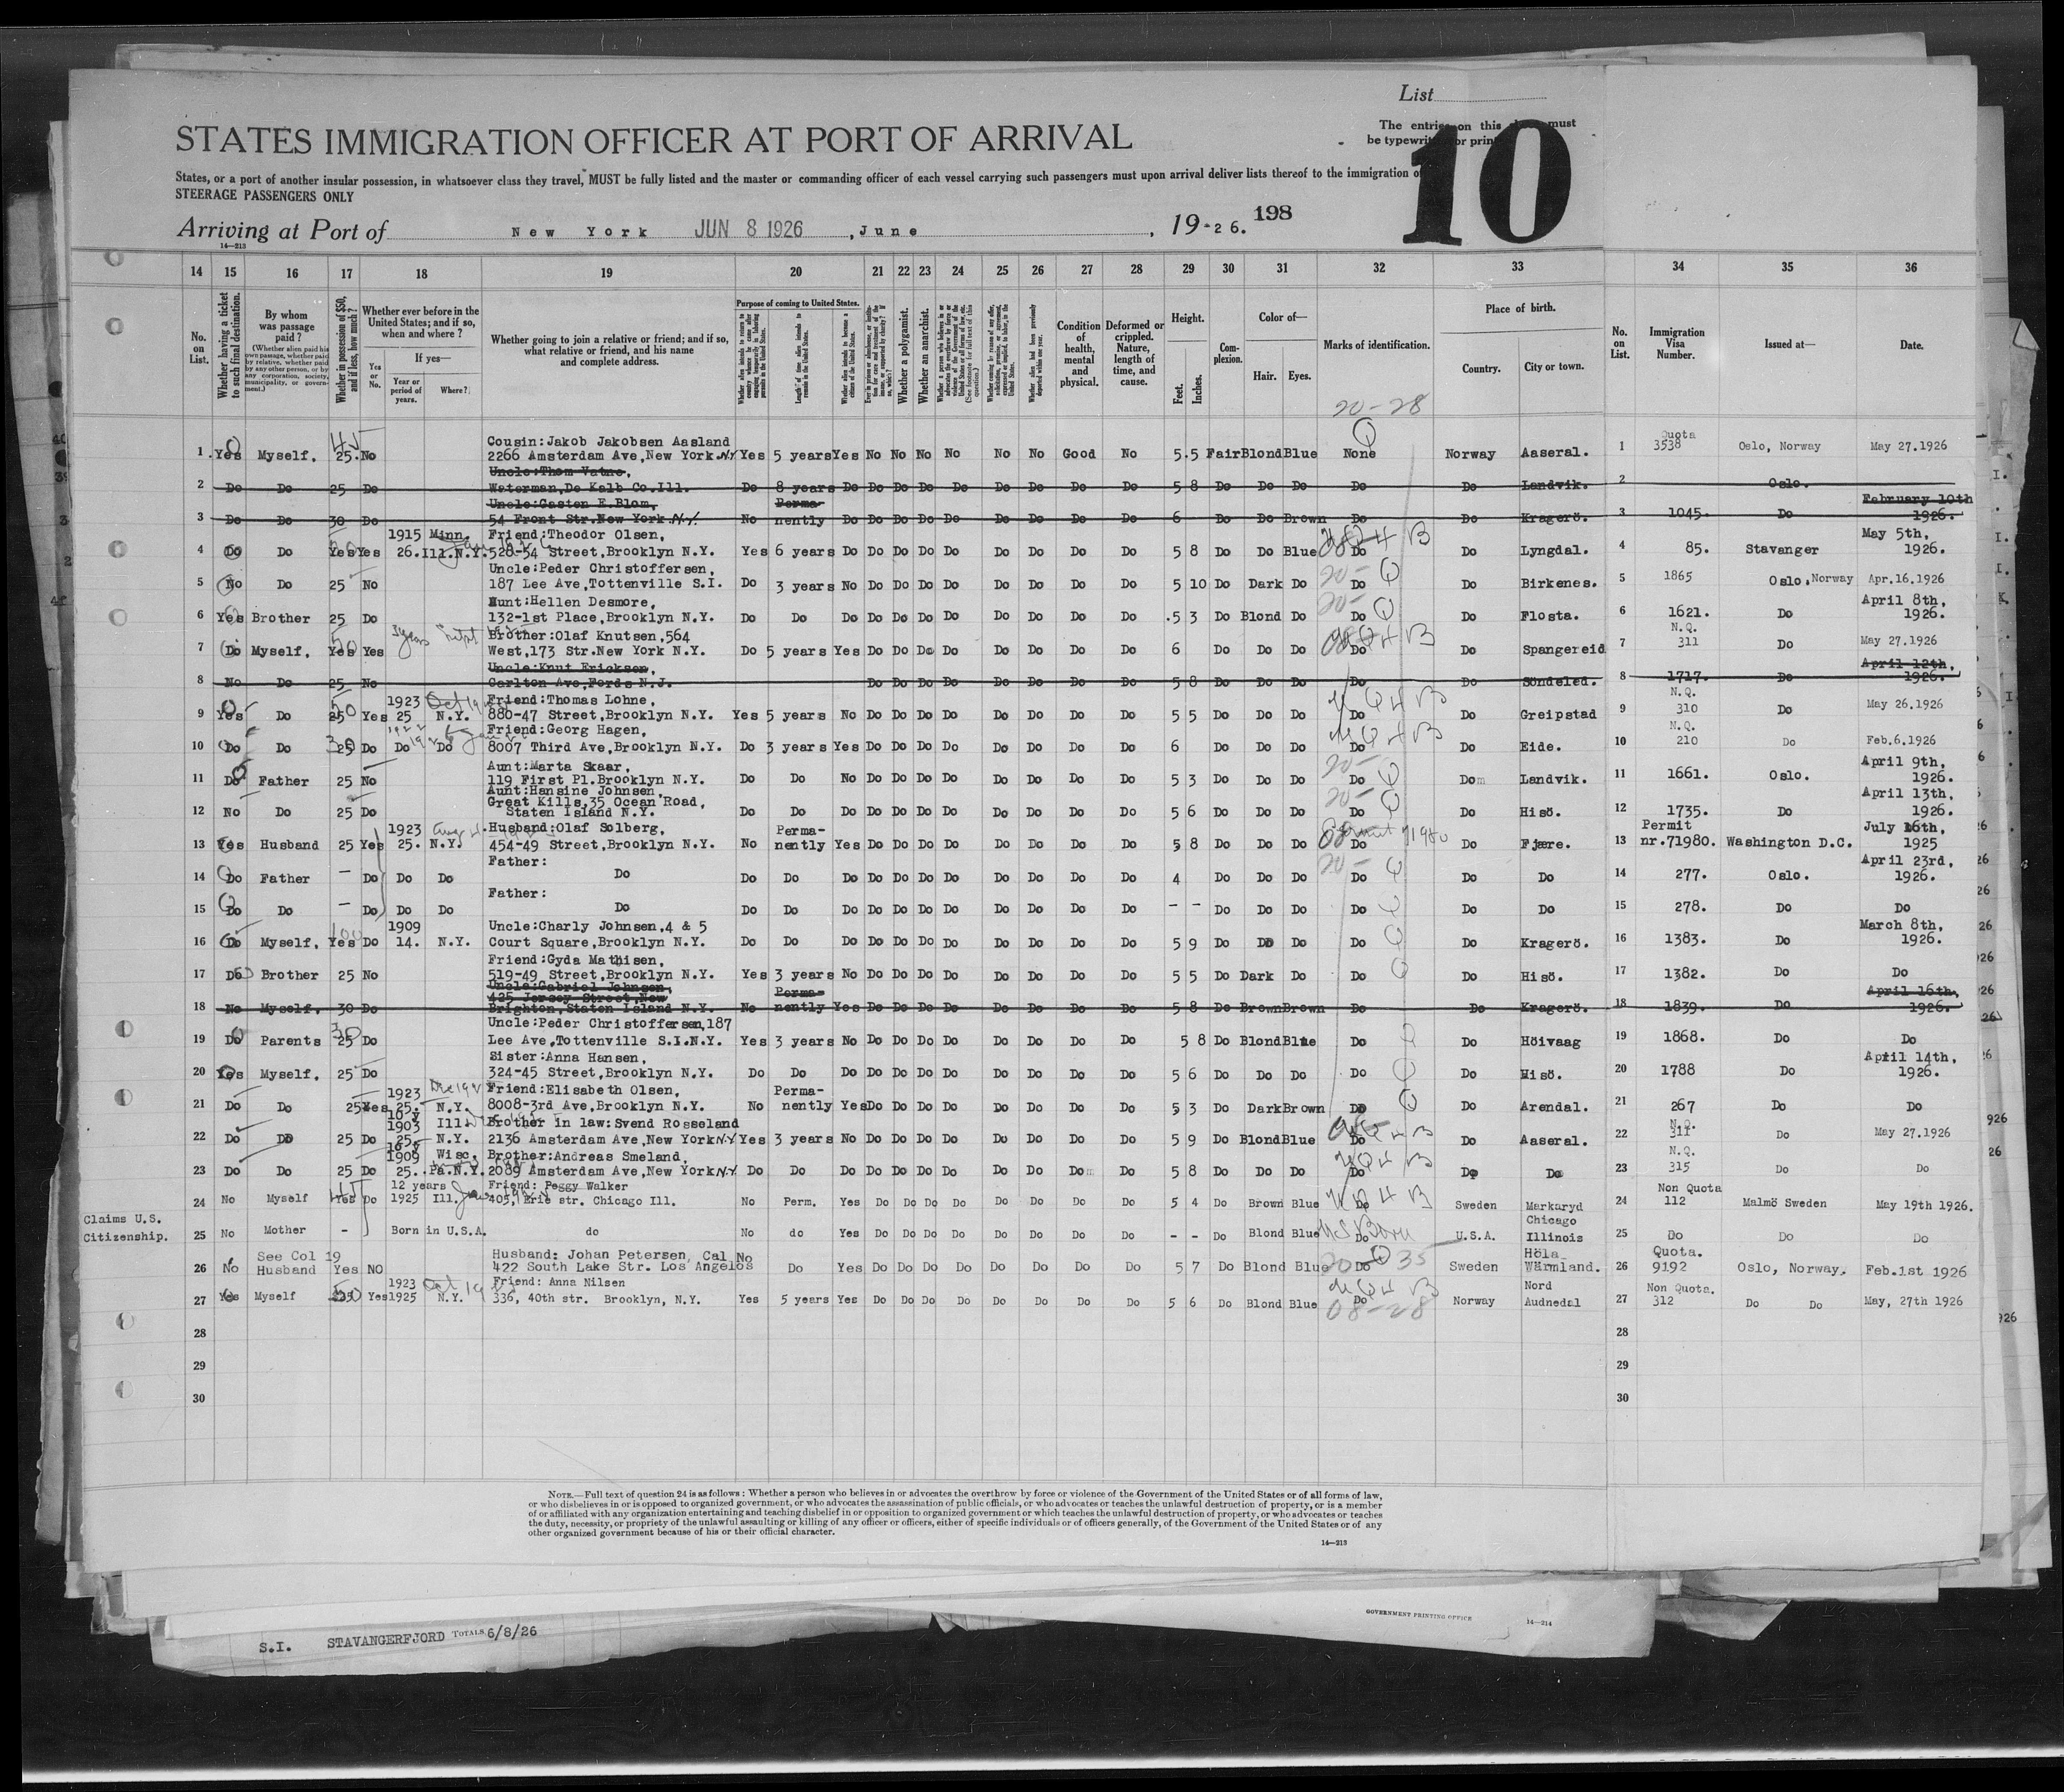 List
The entries on this must
be typewritten or print
10
STATES IMMIGRATION OFFICER AT PORT OF ARRIVAL
States, or a port of another insular possession, in whatsoever class they travel, MUST be fully listed and the master or commanding officer of each vessel carrying such passengers must upon arrival deliver lists thereof to the immigration
STEERAGE PASSENGERS ONLY
Arriving at Port of New York JUN 8 1926, June, 19-26. 198
14—213
14 15 16 17 18 19 20 21 22 23 24 25 26 27 28 29 30 31 32 33 34 35 36
No. on List.
Whether having a ticket to such final destination.
By whom was passage paid?
(Whether alien paid his own passage, whether paid by relative, whether paid by any other person, or by any corporation, society, municipality, or government.)
Whether in possession of $50, and if less, how much?
Whether ever before in the United States; and if so, when and where?
Yes or No.
If yes—
Year or period of years.
Where?
Whether going to join a relative or friend; and if so, what relative or friend, and his name and complete address.
Purpose of coming to United States.
Whether a polygamist.
Whether an anarchist.
Condition of health, mental and physical.
Deformed or crippled. Nature, length of time, and cause.
Height.
Feet. Inches.
Complexion.
Color of—
Hair. Eyes.
Marks of identification.
Place of birth.
Country. City or town.
No. on List.
Immigration Visa Number.
Issued at—
Date.
20-28
1 Yes Myself. 45 25. No Cousin: Jakob Jakobsen Aasland 2266 Amsterdam Ave, New York N.Y. Yes 5 years Yes No No No No No No Good No 5.5 Fair Blond Blue None Norway Aaseral. 1 Quota 3538 Oslo, Norway May 27.1926
2 Do Do 25 Do Uncle: Thom Vatne, Waterman, De Kalb Co. Ill. Do 8 years Do Do Do Do Do Do Do Do Do 5 8 Do Do Do Do Do Landvik. 2 Oslo.
3 Do Do 30 Do Uncle: Gasten E. Blom, 54 Front Str. New York N.Y. No Permanently Do Do Do Do Do Do Do Do Do 6 Do Do Brown Do Do Kragerö. 3 1045. Do February 10th 1926.
4 Do Do Yes Yes 1915 26. Minn. Ill. N.Y. Friend: Theodor Olsen, 528-54 Street, Brooklyn N.Y. Yes 6 years Do Do Do Do Do Do Do Do Do 5 8 Do Do Blue Do Do Lyngdal. 4 85. Stavanger May 5th, 1926.
5 No Do 25 No Uncle: Peder Christoffersen, 187 Lee Ave, Tottenville S.I. Do 3 years No Do Do Do Do Do Do Do Do 5 10 Do Dark Do Do Do Birkenes. 5 1865 Oslo, Norway Apr.16.1926
6 Yes Brother 25 Do Aunt: Hellen Desmore, 132-1st Place, Brooklyn N.Y. Do Do Do Do Do Do Do Do Do Do Do 5 3 Do Blond Do Do Do Flosta. 6 1621. Do April 8th, 1926.
7 Do Myself. Yes Yes Brother: Olaf Knutsen, 564 West, 173 Str. New York N.Y. Do 5 years Yes Do Do Do Do Do Do Do Do 6 Do Do Do Do Do Spangereid 7 N.Q. 311 Do May 27.1926
8 No Do 25 No Uncle: Knut Ericksen, Carlton Ave, Fords N.J. Do Do Do Do Do Do Do Do 5 8 Do Do Do Do Do Söndeled. 8 1717. Do April 12th, 1926.
9 Yes Do 50 25 Yes 1923 25 N.Y. Friend: Thomas Lohne, 880-47 Street, Brooklyn N.Y. Yes 5 years No Do Do Do Do Do Do Do Do 5 5 Do Do Do Do Do Greipstad 9 N.Q. 310 Do May 26.1926
10 Do Do 25 Do Do Do Friend: Georg Hagen, 8007 Third Ave, Brooklyn N.Y. Do 3 years Yes Do Do Do Do Do Do Do Do 6 Do Do Do Do Do Eide. 10 N.Q. 210 Do Feb.6.1926
11 Do Father 25 No Aunt: Marta Skaar, 119 First Pl. Brooklyn N.Y. Do Do No Do Do Do Do Do Do Do Do 5 3 Do Do Do Do Do Landvik. 11 1661. Oslo. April 9th, 1926.
12 No Do 25 Do Aunt: Hansine Johnsen, Great Kills, 35 Ocean Road, Staten Island N.Y. Do Do Do Do Do Do Do Do Do Do Do 5 6 Do Do Do Do Do Hisö. 12 1735. Do April 13th, 1926.
13 Yes Husband 25 Yes 1923 25. N.Y. Husband: Olaf Solberg, 454-49 Street, Brooklyn N.Y. No Permanently Yes Do Do Do Do Do Do Do Do 5 8 Do Do Do Do Do Fjære. 13 Permit nr.71980. Washington D.C. July 16th, 1925
14 Do Father - Do Do Do Father: Do Do Do Do Do Do Do Do Do Do Do Do 4 Do Do Do Do Do Do 14 277. Oslo. April 23rd, 1926.
15 Do Do - Do Do Do Father: Do Do Do Do Do Do Do Do Do Do Do Do - - Do Do Do Do Do Do 15 278. Do Do
16 Do Myself. Yes Do 1909 14. N.Y. Uncle: Charly Johnsen, 4 & 5 Court Square, Brooklyn N.Y. Do Do Do Do Do Do Do Do Do Do Do 5 9 Do Do Do Do Do Kragerö. 16 1383. Do March 8th, 1926.
17 Do Brother 25 No Friend: Gyda Mathisen, 519-49 Street, Brooklyn N.Y. Yes 3 years No Do Do Do Do Do Do Do Do 5 5 Do Dark Do Do Do Hisö. 17 1382. Do Do
18 No Myself. 30 Do Uncle: Gabriel Johnsen, 425 Jersey Street, New Brighton, Staten Island N.Y. No Permanently Yes Do Do Do Do Do Do Do Do 5 8 Do Brown Brown Do Do Kragerö. 18 1839. Do April 16th, 1926.
19 Do Parents 30 25 Do Uncle: Peder Christoffersen, 187 Lee Ave, Tottenville S.I.N.Y. Yes 3 years No Do Do Do Do Do Do Do Do 5 8 Do Blond Blue Do Do Höivaag 19 1868. Do Do
20 Yes Myself. 25 Do Sister: Anna Hansen, 324-45 Street, Brooklyn N.Y. Do Do Do Do Do Do Do Do Do Do Do 5 6 Do Do Do Do Do Hisö. 20 1788 Do April 14th, 1926.
21 Do Do 25 Yes 1923 25. N.Y. Friend: Elisabeth Olsen, 8008-3rd Ave, Brooklyn N.Y. No Permanently Yes Do Do Do Do Do Do Do Do 5 3 Do Dark Brown Do Do Arendal. 21 267 Do Do
22 Do Do 25 Do 10 y 1903 25. Ill. N.Y. Brother in law: Svend Rosseland 2136 Amsterdam Ave, New York N.Y. Yes 3 years No Do Do Do Do Do Do Do Do 5 9 Do Blond Blue Do Do Aaseral. 22 N.Q. 311 Do May 27.1926
23 Do Do 25 Do 1909 25. Wisc. Pa. N.Y. Brother: Andreas Smeland, 2089 Amsterdam Ave, New York N.Y. Do Do Do Do Do Do Do Do Do Do Do 5 8 Do Do Do Do Do Do 23 N.Q. 315 Do Do
24 No Myself Yes Do 12 years 1925 Ill. Friend: Peggy Walker 405, Erie str. Chicago Ill. No Perm. Yes Do Do Do Do Do Do Do Do 5 4 Do Brown Blue Do Sweden Markaryd 24 Non Quota 112 Malmö Sweden May 19th 1926.
Claims U.S. Citizenship.
25 No Mother - Born in U.S.A. do No do Yes Do Do Do Do Do Do Do Do - - Do Blond Blue US Born Do U.S.A. Chicago Illinois 25 Do Do Do
26 No See Col 19 Husband Yes NO Husband: Johan Petersen, Cal 422 South Lake Str. Los Angelos No Do Yes Do Do Do Do Do Do Do Do 5 7 Do Blond Blue Do Sweden Höla Wärmland. 26 Quota. 9192 Oslo, Norway. Feb.1st 1926
27 Yes Myself Yes 1923 1925 N.Y. Friend: Anna Nilsen 336, 40th str. Brooklyn, N.Y. Yes 5 years Yes Do Do Do Do Do Do Do Do 5 6 Do Blond Blue Do 08-28 Norway Nord Audnedal 27 Non Quota. 312 Do Do May, 27th 1926
28 28
29 29
30 30
NOTE.—Full text of question 24 is as follows: Whether a person who believes in or advocates the overthrow by force or violence of the Government of the United States or of all forms of law,
or who disbelieves in or is opposed to organized government, or who advocates the assassination of public officials, or who advocates or teaches the unlawful destruction of property, or is a member
of or affiliated with any organization entertaining and teaching disbelief in or opposition to organized government or which teaches the unlawful destruction of property, or who advocates or teaches
the duty, necessity, or propriety of the unlawful assaulting or killing of any officer or officers, either of specific individuals or of officers generally, of the Government of the United States or of any
other organized government because of his or their official character.
14—213
GOVERNMENT PRINTING OFFICE 14—214
S.I. STAVANGERFJORD TOTALS 6/8/26